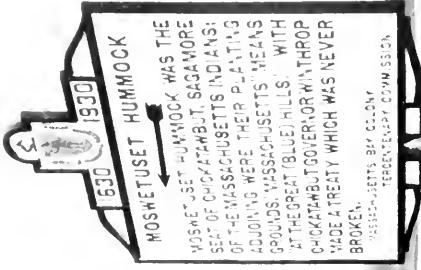 1630 1930
MOSWETUSET HUMMOCK
MOSWETUSET HUMMOCK WAS THE
SEAT OF CHICKATAWBUT, SAGAMORE
OF THE MASSACHUSETTS INDIANS:
ADJOINING WERE THEIR PLANTING
GROUNDS. "MASSACHUSETTS" MEANS
"AT THE GREAT (BLUE) HILLS." WITH
CHICKATAWBUT GOVERNOR WINTHROP
MADE A TREATY WHICH WAS NEVER
BROKEN.
MASSACHUSETTS BAY COLONY
TERCENTENARY COMMISSION